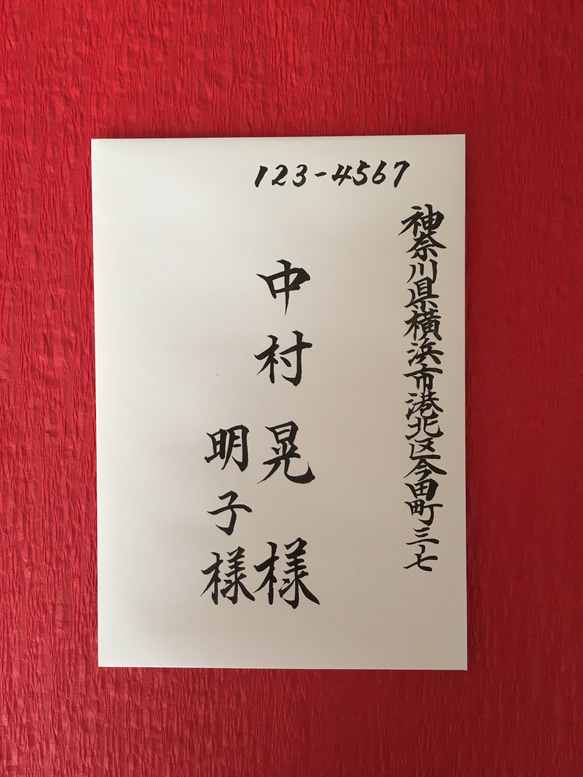 123-4567
神奈川県横浜市港北区今田町三七
中村晃様
明子様